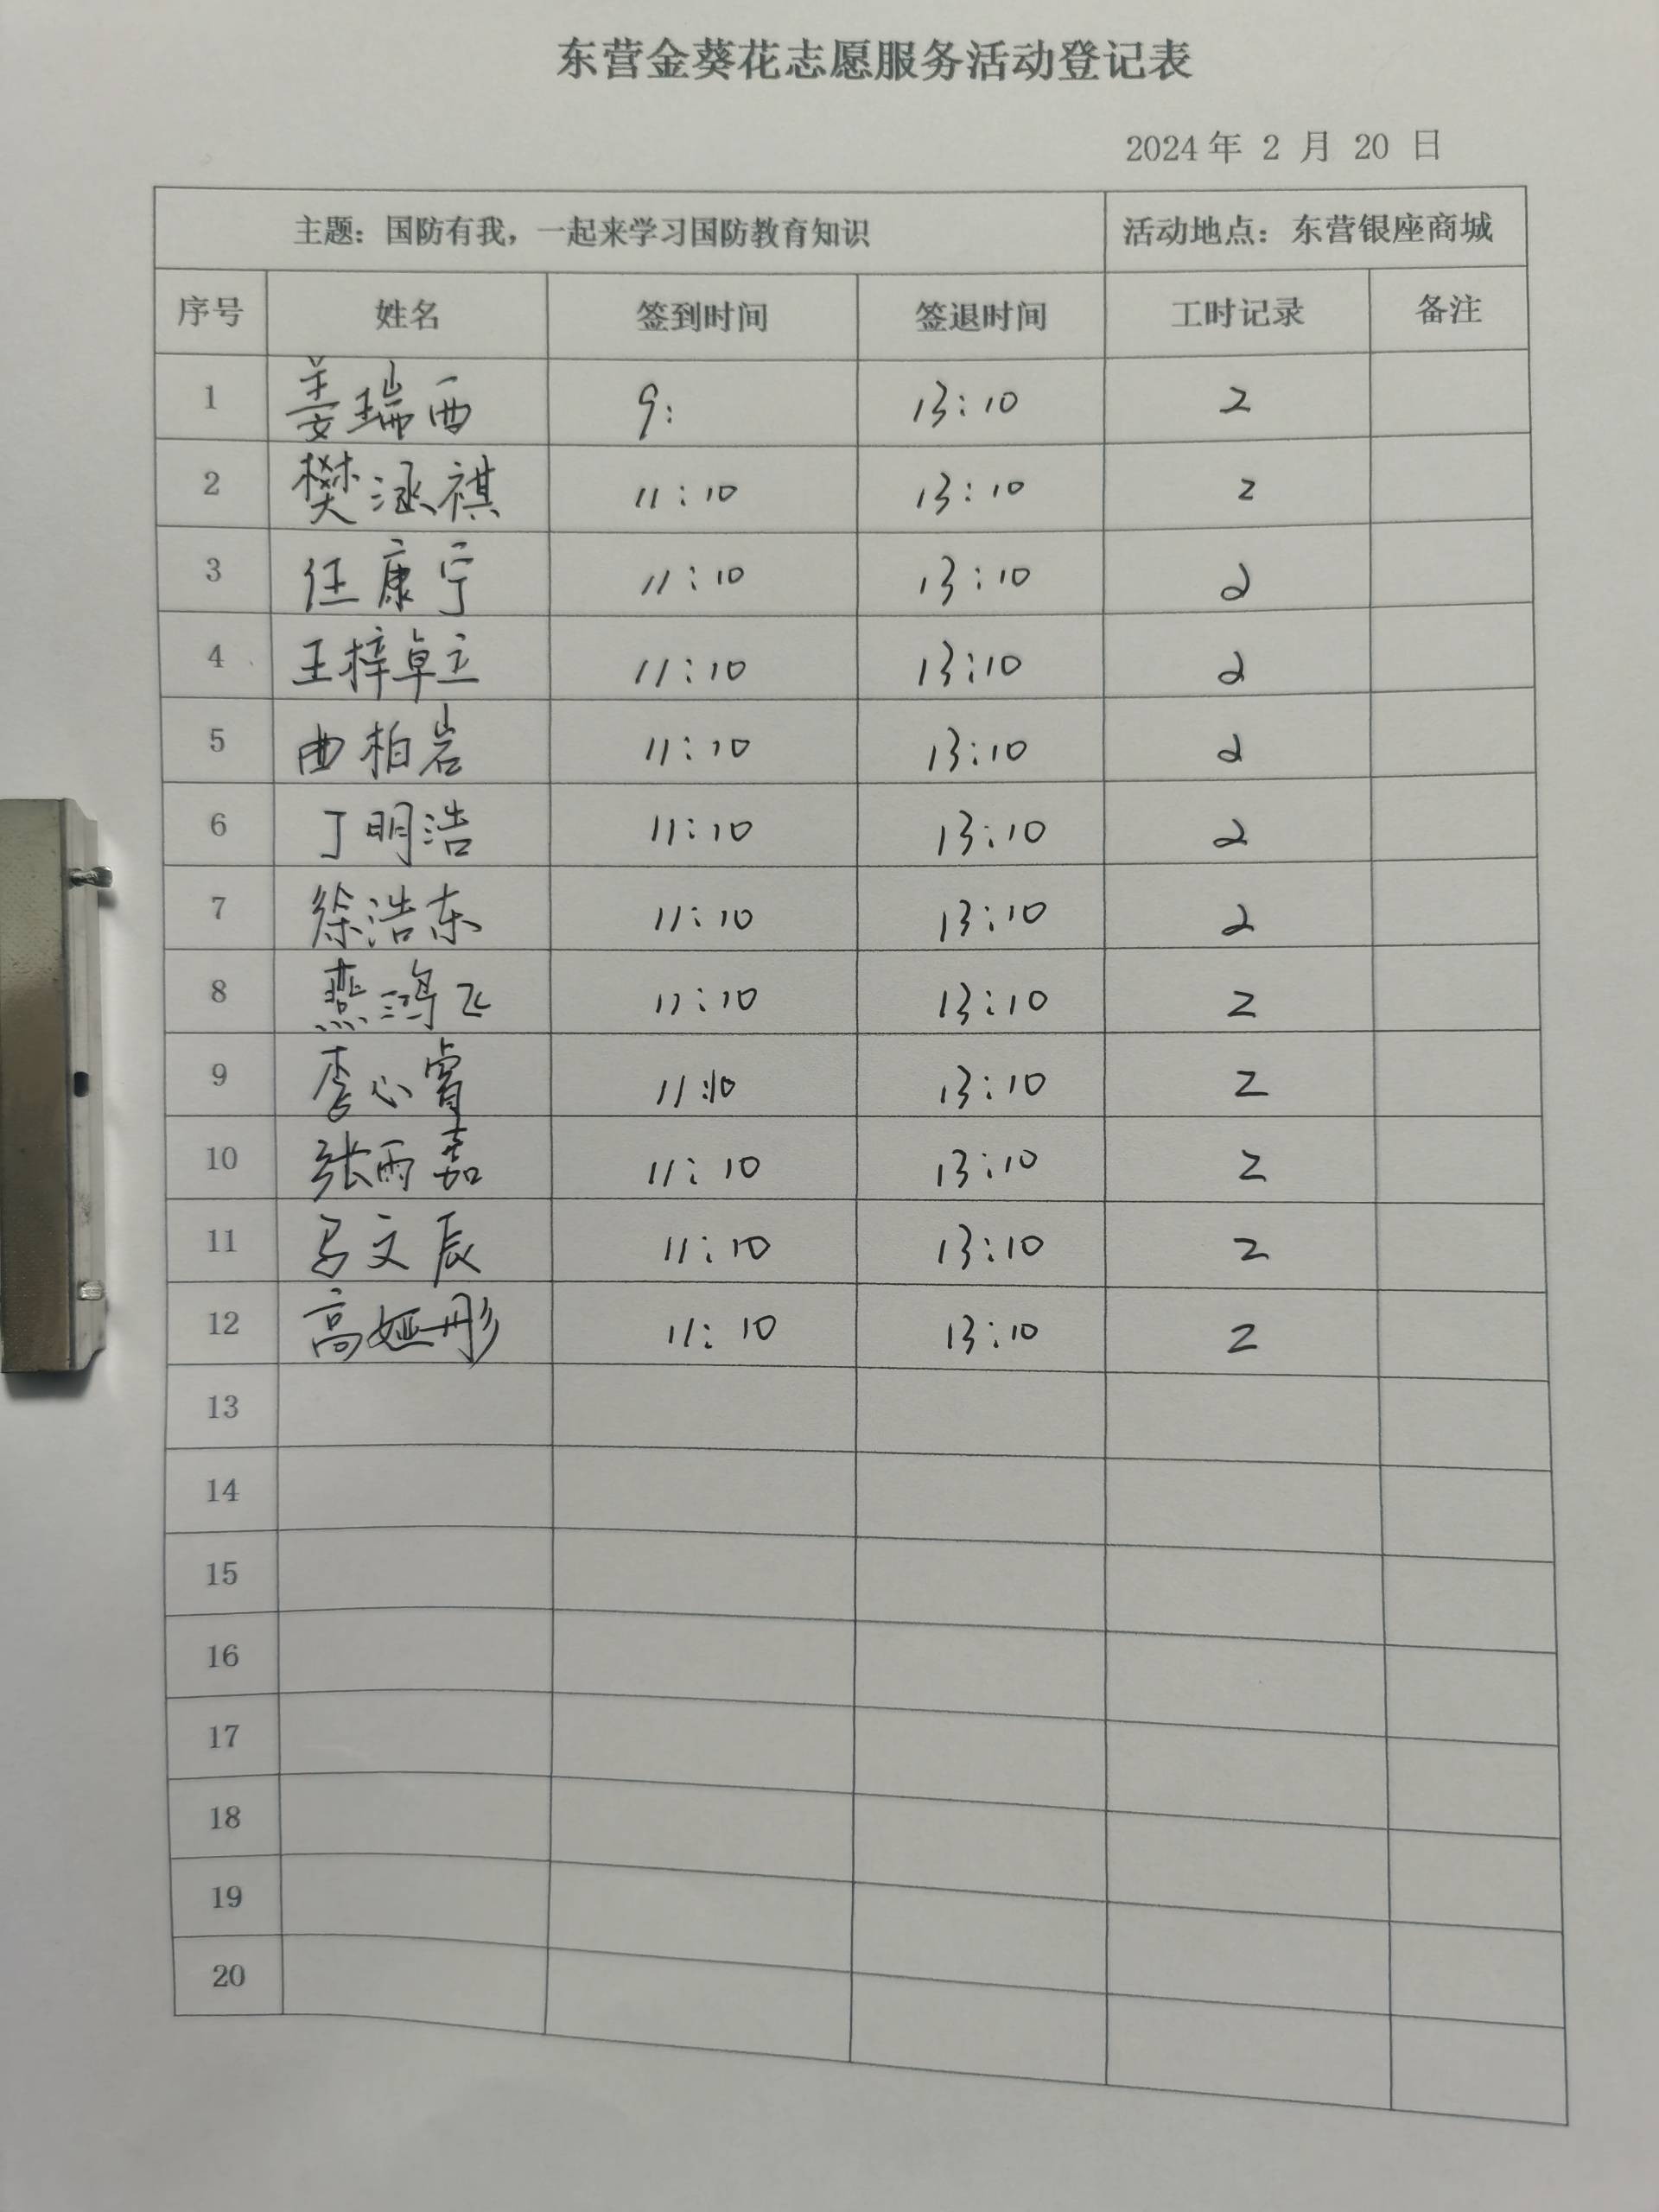 东营金葵花志愿服务活动登记表
2024年 2 月 20 日
主题：国防有我，一起来学习国防教育知识 活动地点：东营银座商城
序号 姓名 签到时间 签退时间 工时记录 备注
1 姜瑞西 9: 13:10 2
2 樊涵祺 11:10 13:10 2
3 任康宁 11:10 13:10 2
4 王梓卓立 11:10 13:10 2
5 曲柏岩 11:10 13:10 2
6 丁明浩 11:10 13:10 2
7 徐浩东 11:10 13:10 2
8 燕鸿飞 11:10 13:10 2
9 李心睿 11:10 13:10 2
10 张雨嘉 11:10 13:10 2
11 马文辰 11:10 13:10 2
12 高娅彤 11:10 13:10 2
13
14
15
16
17
18
19
20